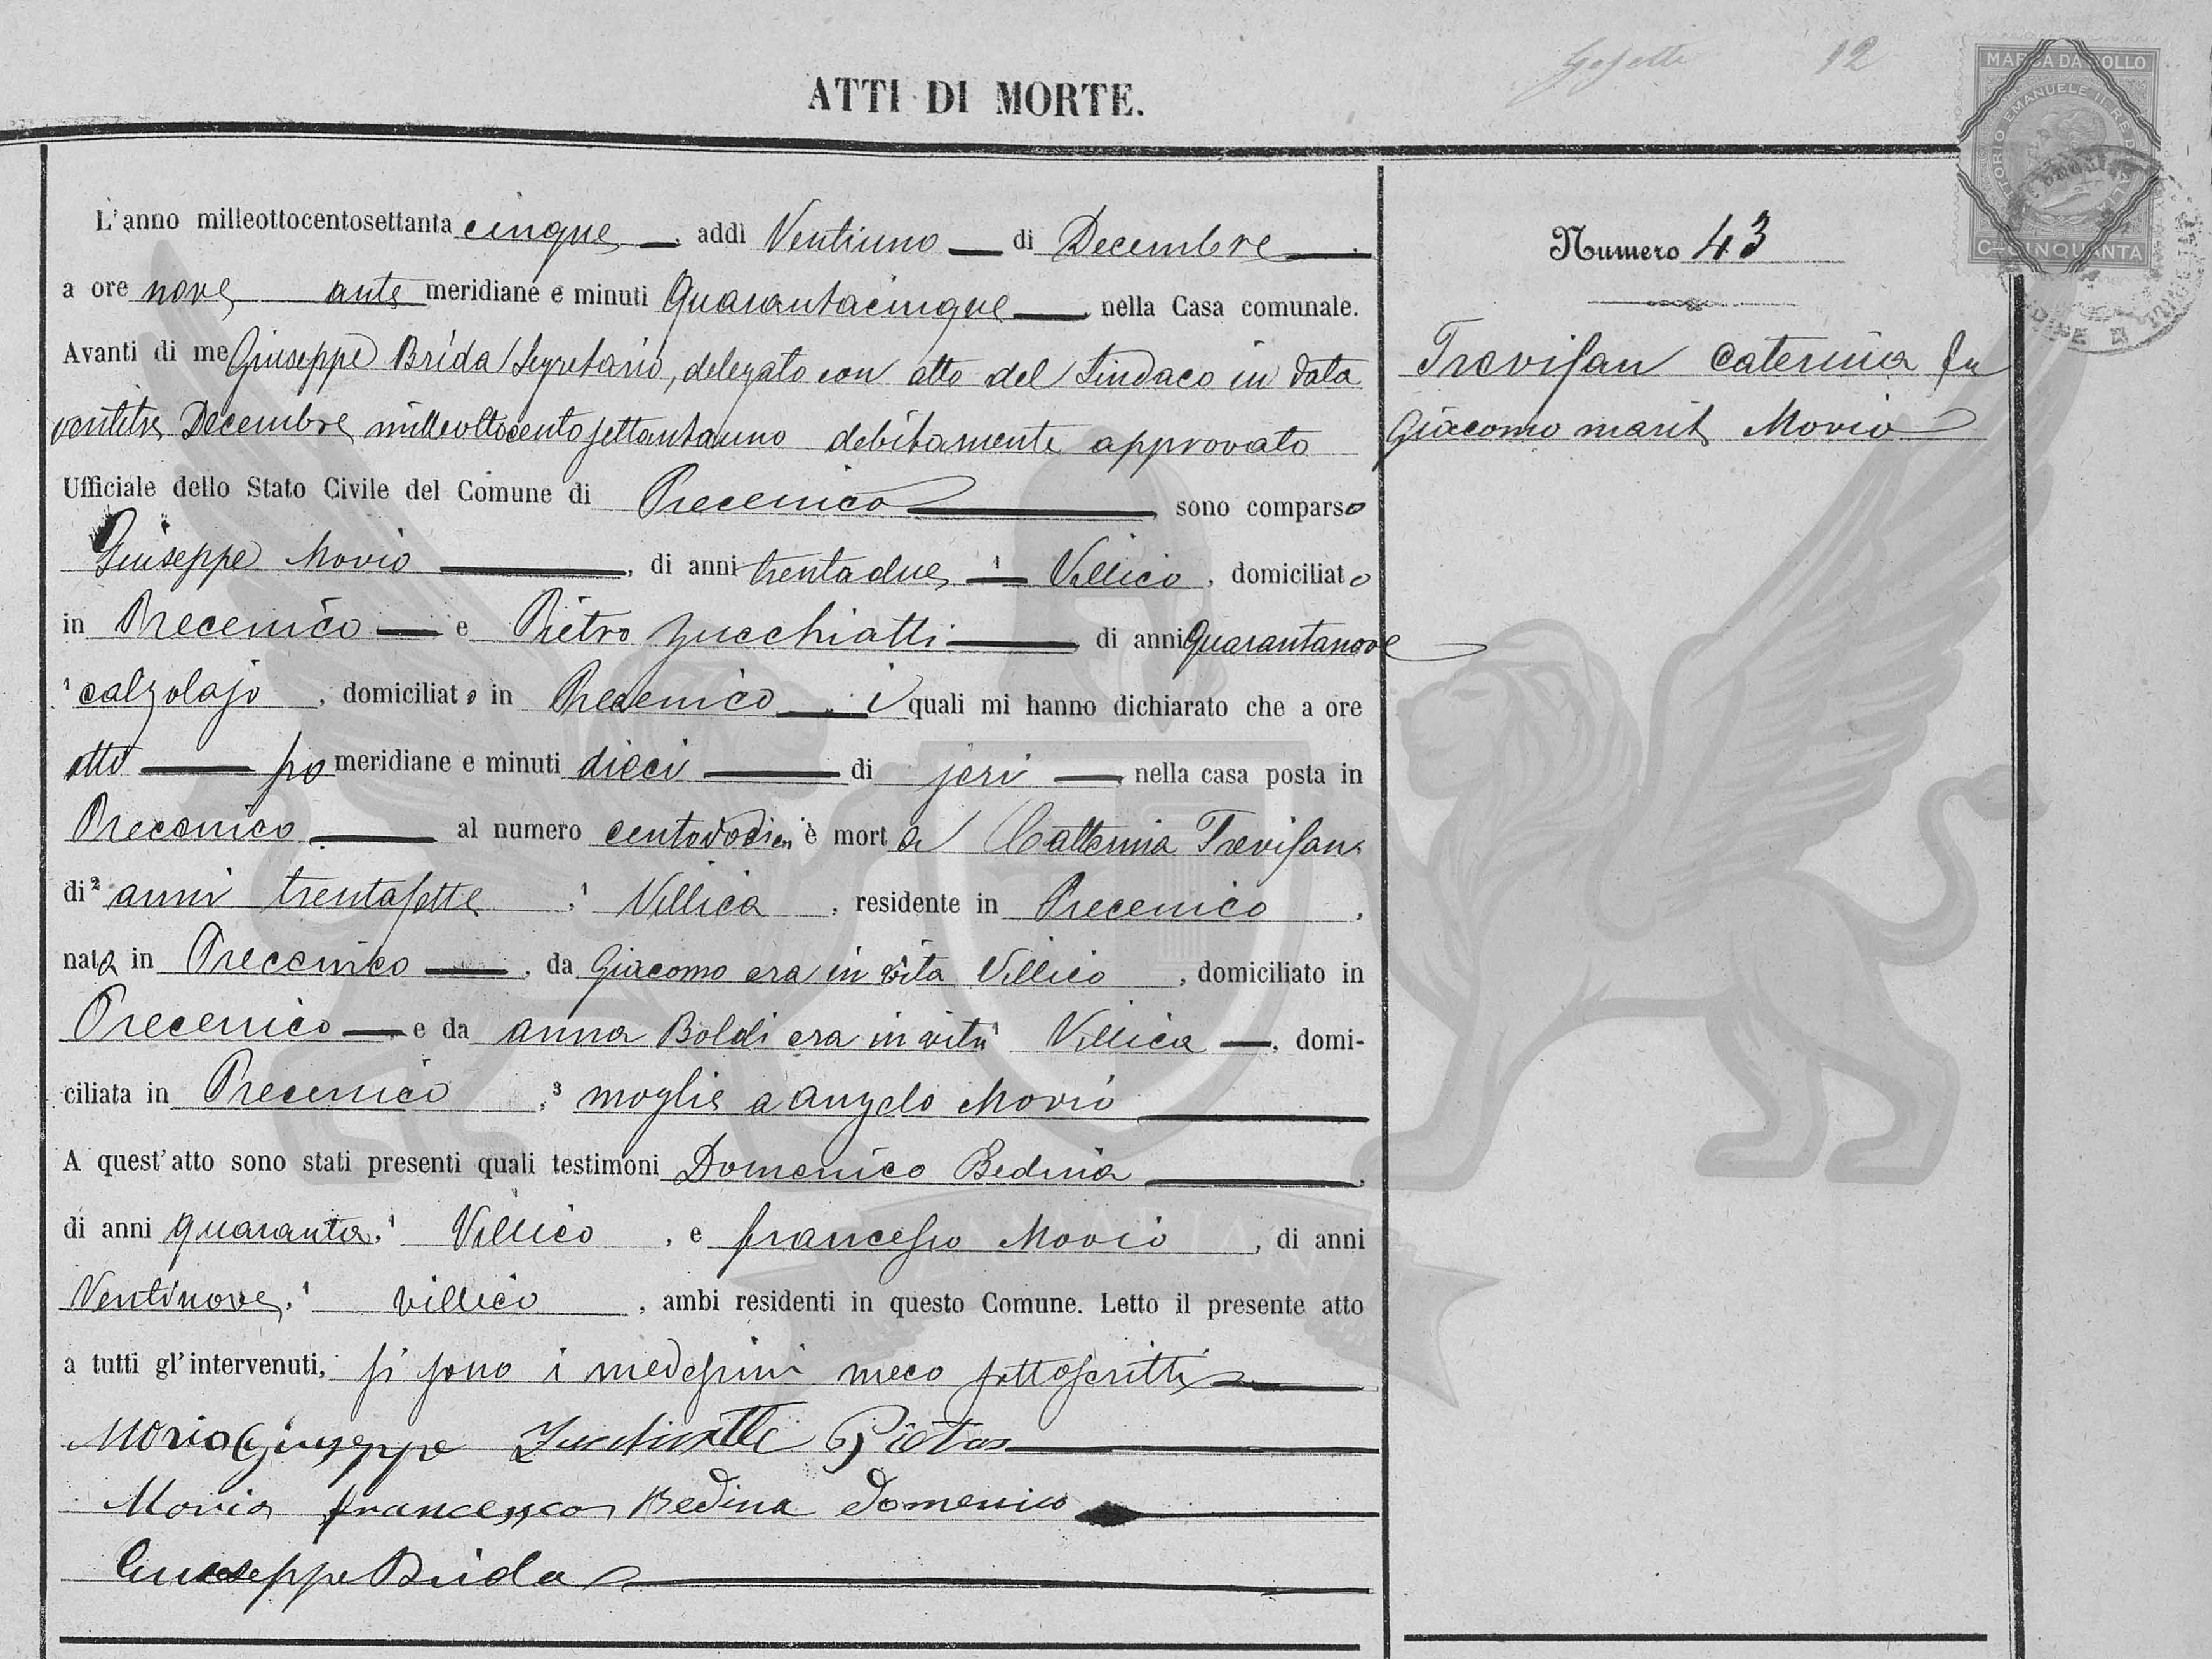 12
ATTI DI MORTE.
MARCA DA BOLLO
VITTORIO EMANUELE II RE D'ITALIA
CINQUANTA
L'anno milleottocentosettanta cinque addì Ventiuno di Decembre
a ore nove ante meridiane e minuti Quarantacinque nella Casa comunale.
Avanti di me Giuseppe Brida Segretario, delegato con atto del Sindaco in data
ventitre Decembre milleottocentosettantauno debitamente approvato
Ufficiale dello Stato Civile del Comune di Precenico sono comparso
Giuseppe Movio, di anni trentadue ¹ Villico, domiciliato
in Precenico e Pietro Zucchiatti di anni Quarantanove
¹ calzolajo, domiciliato in Precenico i quali mi hanno dichiarato che a ore
otto po meridiane e minuti dieci di jeri, nella casa posta in
Precenico al numero centododici è morta Catterina Trevisan
di ² anni trentasette, ¹ Villica, residente in Precenico,
nata in Precenico, da Giacomo era in vita Villico, domiciliato in
Precenico e da Anna Boldi era in vita ¹ Villica, domi-
ciliata in Precenico, ³ moglie a Angelo Movio
A quest'atto sono stati presenti quali testimoni Domenico Bedina,
di anni quaranta, ¹ Villico, e Francesco Movio, di anni
Ventinove, ¹ villico, ambi residenti in questo Comune. Letto il presente atto
a tutti gl'intervenuti, si sono i medesimi meco sottoscritti
Movio Giuseppe Zucchiatti Pietro
Movio Francesco Bedina Domenico
Giuseppe Brida
Numero 43
Trevisan Caterina fu
Giacomo marit Movio